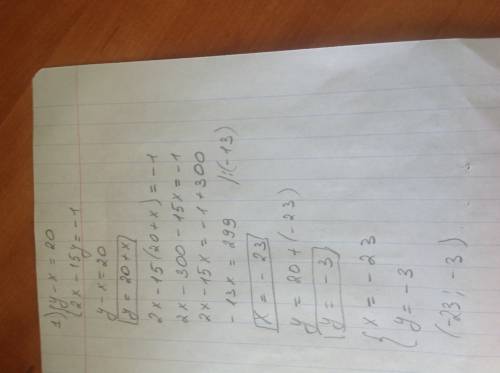 1) { y - x = 20
2x - 15y = -1
y - x = 20
y = 20 + x
2x - 15(20 + x) = -1
2x - 300 - 15x = -1
2x - 15x = -1 + 300
-13x = 299 | : (-13)
x = -23
y = 20 + (-23)
y = -3
{ x = -23
y = -3
(-23; -3)